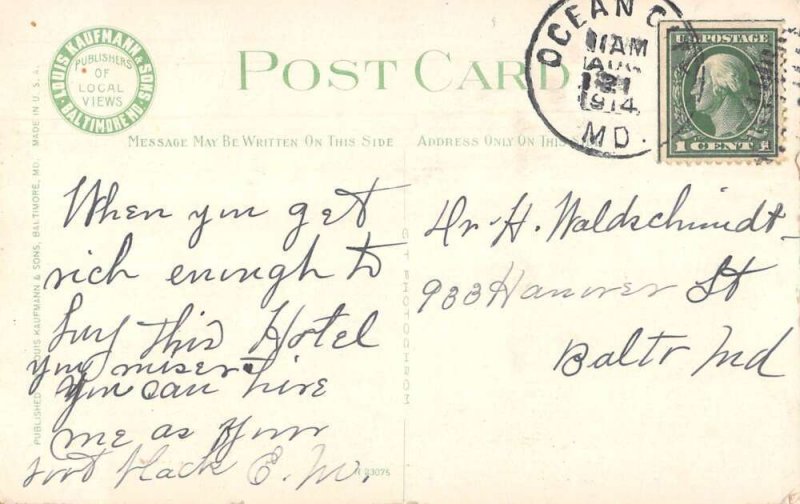 LOUIS KAUFMANN & SONS
BALTIMORE MD.
PUBLISHERS
OF
LOCAL
VIEWS
POST CARD
OCEAN CITY
11 AM
AUG
21
1914
MD.
U.S. POSTAGE
1 CENT 1
MESSAGE MAY BE WRITTEN ON THIS SIDE
ADDRESS ONLY ON THIS
PUBLISHED LOUIS KAUFMANN & SONS, BALTIMORE, MD. MADE IN U.S.A.
When you get
rich enough to
buy this Hotel
you miser
you can hire
me as your
boot black E. W.
R 33075
Dr. H. Waldschmidt
933 Hanover St
Balto Md